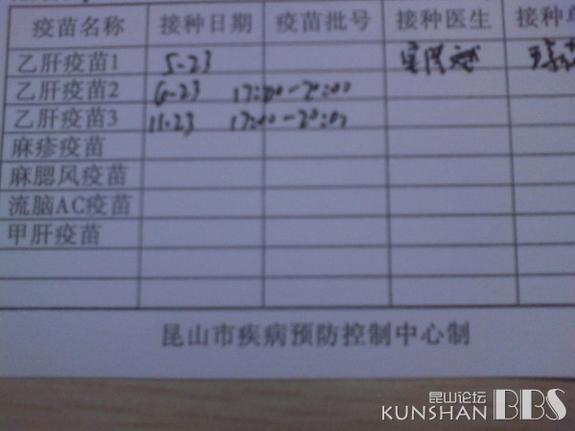 疫苗名称 接种日期 疫苗批号 接种医生 接种单
乙肝疫苗1 5-23
乙肝疫苗2 6-23 17:00-20:00
乙肝疫苗3 11-23 17:00-20:00
麻疹疫苗
麻腮风疫苗
流脑AC疫苗
甲肝疫苗
昆山市疾病预防控制中心制
昆山论坛
KUNSHAN BBS